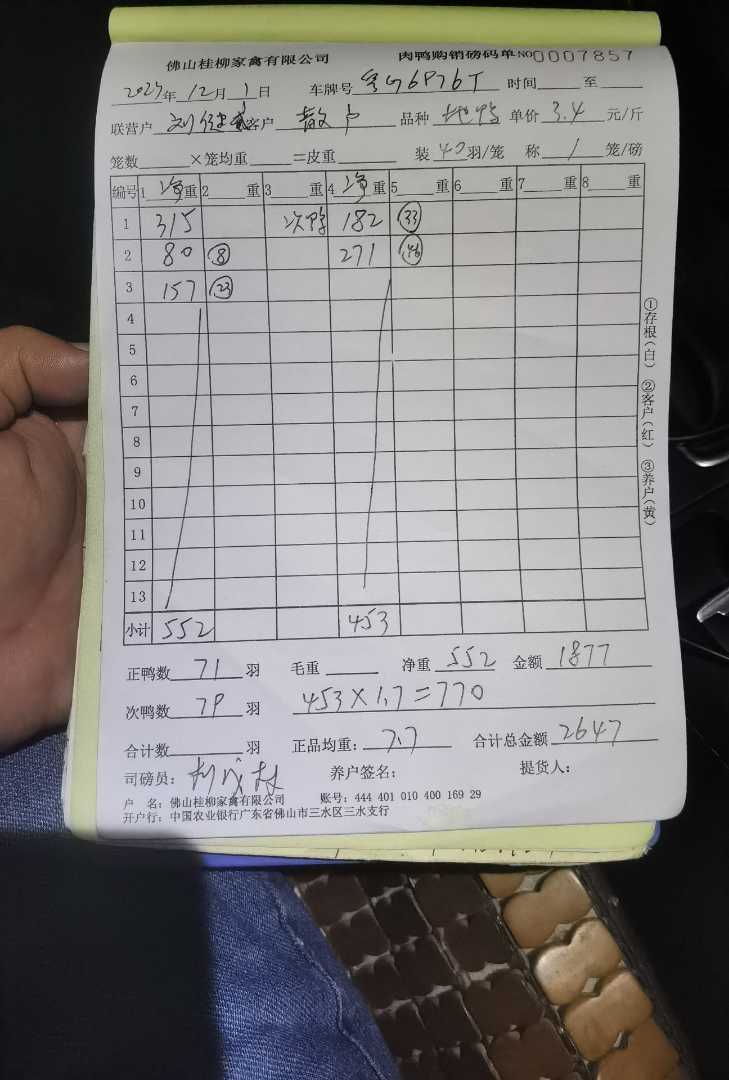 佛山桂柳家禽有限公司 肉鸭购销磅码单 NO 0007857
年 12 月 1 日 车牌号 粤G6P76T 时间 至
联营户 客户 散户 品种 单价 3.4 元/斤
笼数 ×笼均重 =皮重 装 40 羽/笼 称 1 笼/磅
编号 1 净 重 2 重 3 重 4 净 重 5 重 6 重 7 重 8 重
1 315 次鸭 182 33
2 80 8 271 46
3 157 23
4
5
6
7
8
9
10
11
12
13
小计 552 453
正鸭数 71 羽 毛重 净重 552 金额 1877
次鸭数 79 羽 453×1.7=770
合计数 羽 正品均重: 7.7 合计总金额 2647
司磅员: 养户签名: 提货人:
户 名: 佛山桂柳家禽有限公司 账号: 444 401 010 400 169 29
开户行: 中国农业银行广东省佛山市三水区三水支行
①存根(白) ②客户(红) ③养户(黄)